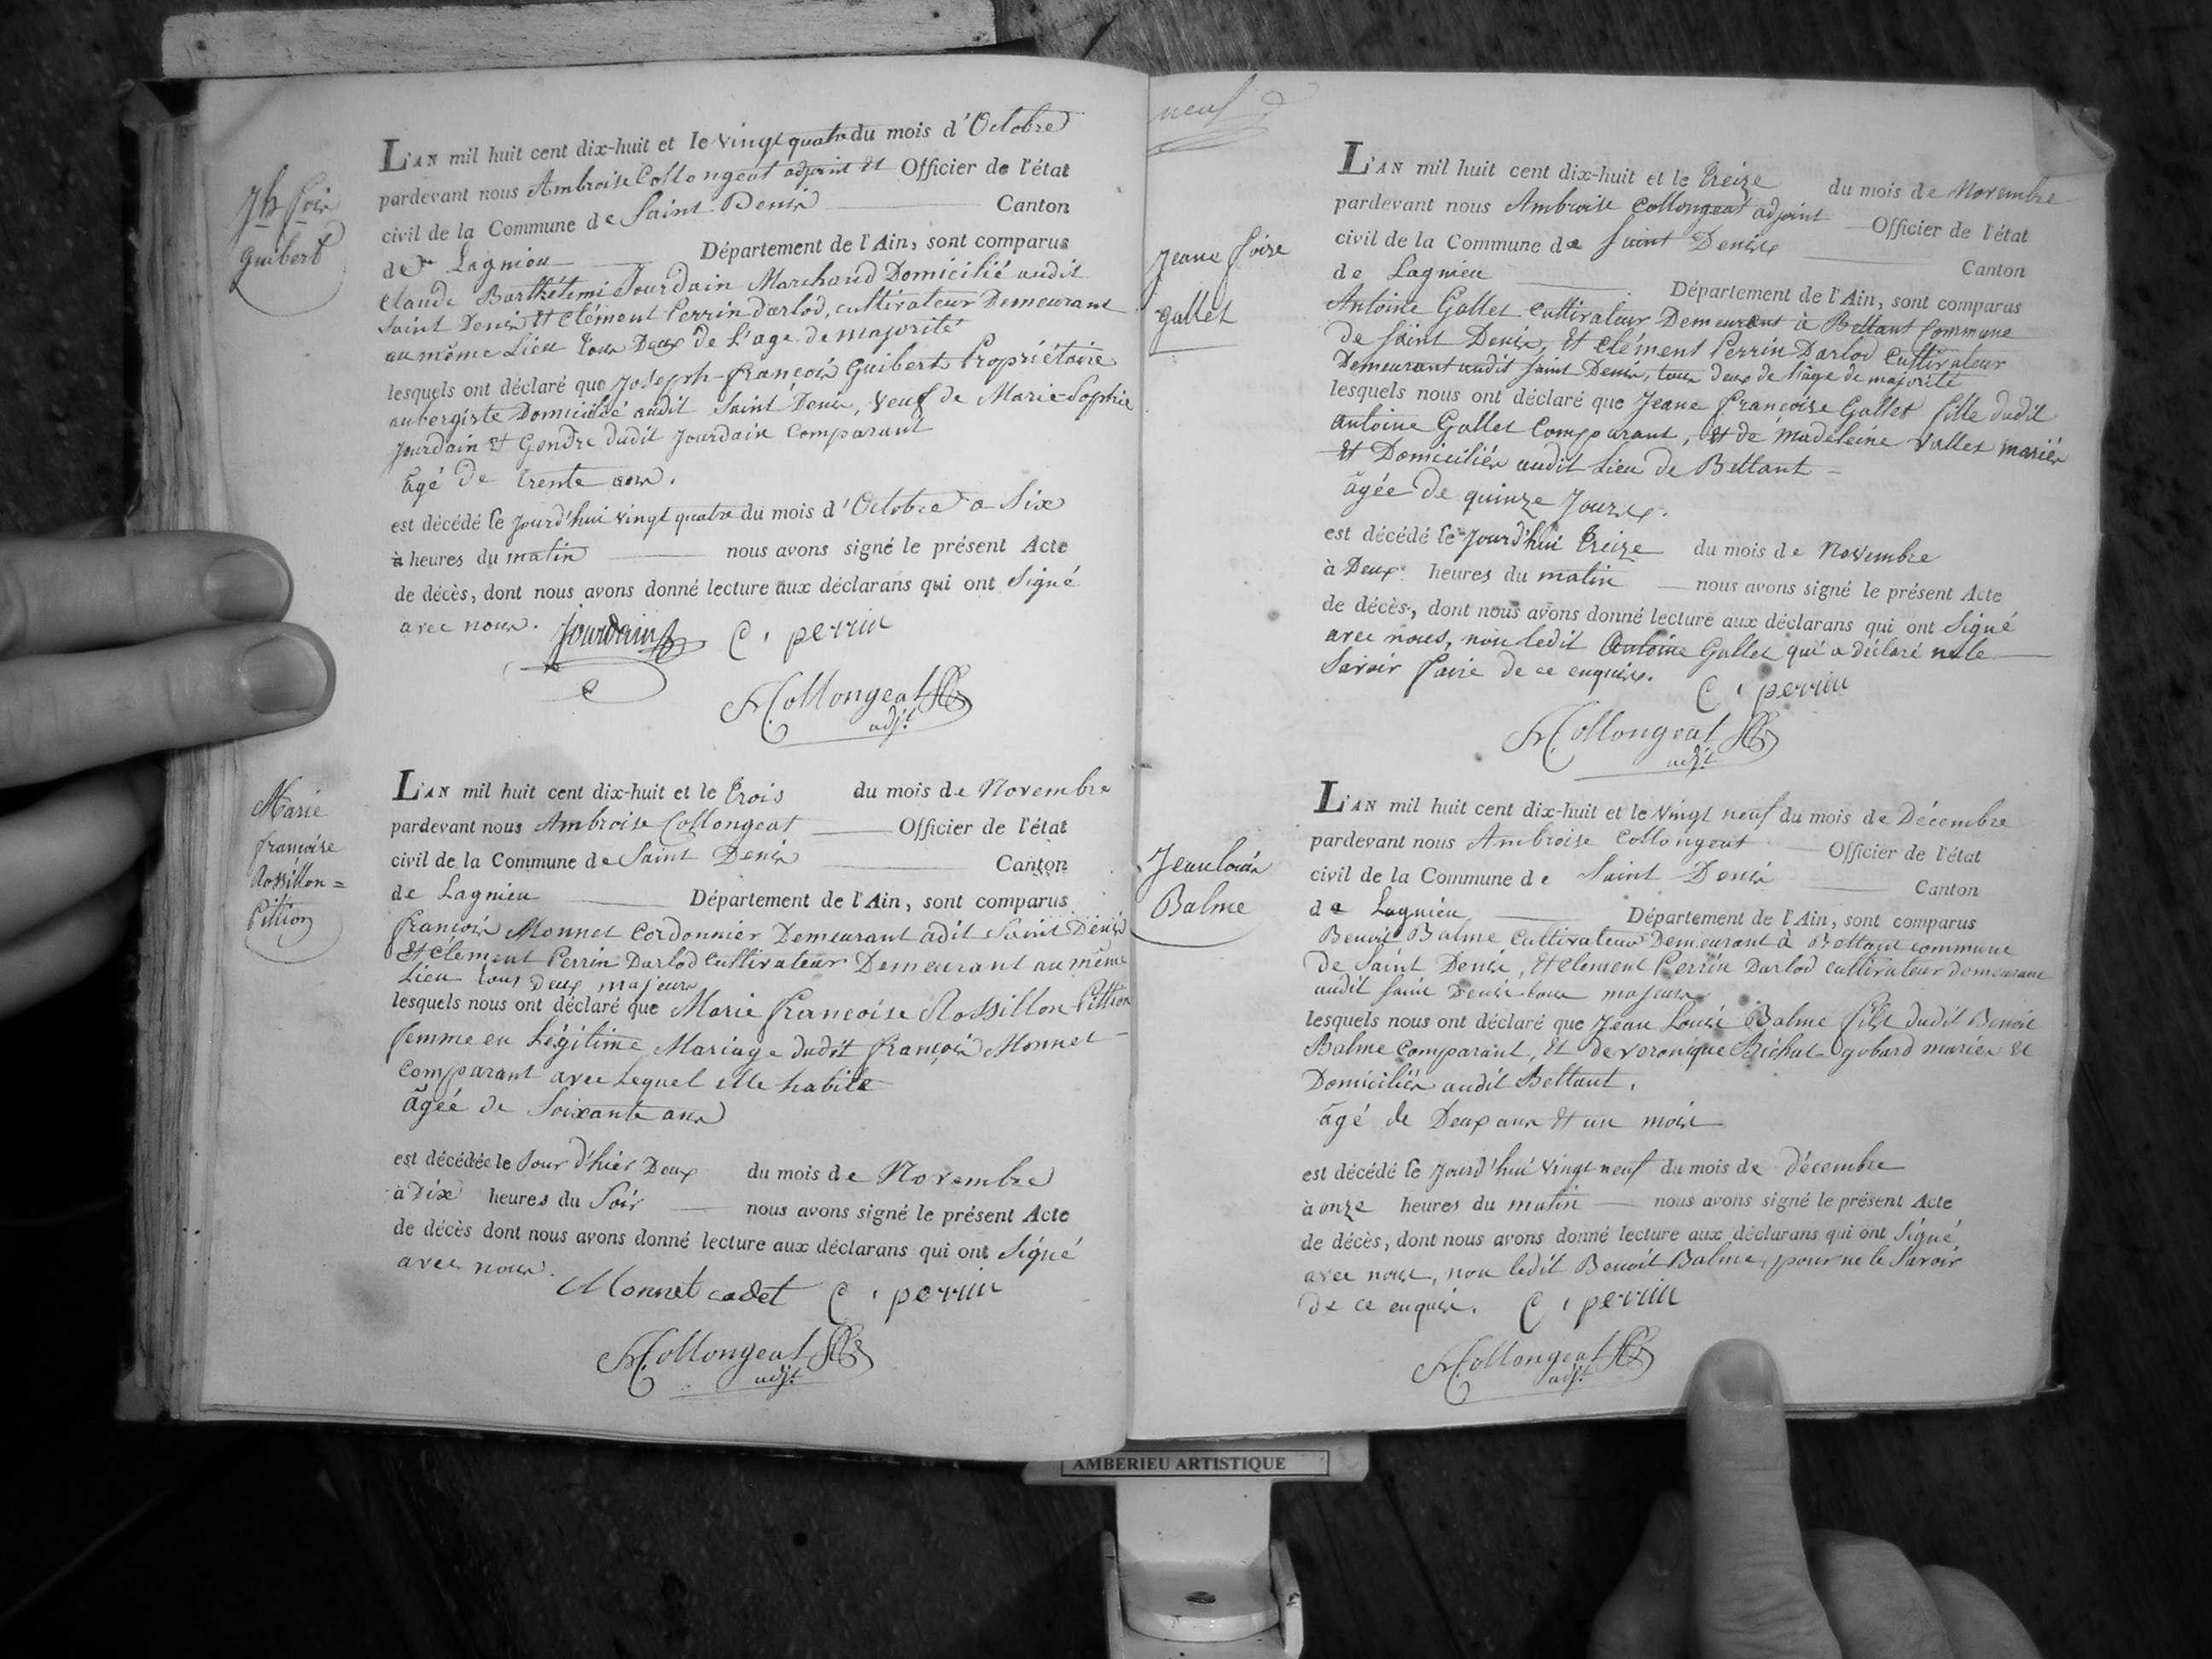 Jh. f.ois
guibert
L'AN mil huit cent dix-huit et le vingt quatre du mois d'Octobre
pardevant nous Ambroise Collongeat adjoint et Officier de l'état
civil de la Commune de Saint Denis Canton
de Lagnieu Département de l'Ain, sont comparus
Claude Barthélemi Jourdain Marchand Domicilié audit
Saint Denis et Clément Perrin Darlod, cultivateur Demeurant
au même Lieu tous Deux de L'age de majorité
lesquels ont déclaré que Joseph-françois Guibert Propriétaire
aubergiste Domicilié audit Saint Denis, veuf de Marie-Sophie
Jourdain et Gendre dudit Jourdain Comparant
âgé de trente ans.
est décédé le jourd'hui vingt quatre du mois d'Octobre a Six
à heures du matin nous avons signé le présent Acte
de décès, dont nous avons donné lecture aux déclarans qui ont Signé
avec nous. Jourdain C. perrin
A Collongeat
adjt
Marie
françoise
Rossillon=
Pittion
L'AN mil huit cent dix-huit et le trois du mois de Novembre
pardevant nous Ambroise Collongeat Officier de l'état
civil de la Commune de Saint Denis Canton
de Lagnieu Département de l'Ain, sont comparus
françois Monnet Cordonnier Demeurant adit Saint Denis
et Clément Perrin Darlod Cultivateur Demeurant au même
Lieu tous Deux majeurs
lesquels nous ont déclaré que Marie françoise Rossillon Pittion
femme en Légitime Mariage dudit françois Monnet
Comparant avec Lequel elle habite
âgée de Soixante ans
est décédée le Jour d'hier Deux du mois de Novembre
à Dix heures du Soir nous avons signé le présent Acte
de décès dont nous avons donné lecture aux déclarans qui ont Signé
avec nous.
Monnet cadet C. perrin
A Collongeat
adjt
neuf
Jeane foise
gallet
L'AN mil huit cent dix-huit et le treize du mois de Novembre
pardevant nous Ambroise Collongeat adjoint Officier de l'état
civil de la Commune de Saint Denis Canton
de Lagnieu Département de l'Ain, sont comparus
Antoine Gallet Cultivateur Demeurant à Bettant Commune
de Saint Denis, et Clément Perrin Darlod Cultivateur
Demeurant audit Saint Denis, tous deux de l'âge de majorité
lesquels nous ont déclaré que Jeane françoise Gallet fille dudit
Antoine Gallet Comparant, et de Madeleine Vallet mariés
et Domiciliés audit Lieu de Bettant =
âgée de quinze Jours.
est décédé le Jourd'hui treize du mois de Novembre
à Deux heures du matin nous avons signé le présent Acte
de décès, dont nous avons donné lecture aux déclarans qui ont Signé
avec nous, non ledit Antoine Gallet qui a déclaré ne le
Savoir faire de ce enquis. C. perrin
A Collongeat
adjt
Jean louis
Balme
L'AN mil huit cent dix-huit et le vingt neuf du mois de Décembre
pardevant nous Ambroise Collongeat Officier de l'état
civil de la Commune de Saint Denis Canton
de Lagnieu Département de l'Ain, sont comparus
Benoit Balme Cultivateur Demeurant à Bettant commune
de Saint Denis, et Clément Perrin Darlod cultivateur demeurant
audit Saint Denis tous majeurs
lesquels nous ont déclaré que Jean Louis Balme fils dudit Benoit
Balme Comparant, et de veronique Bichat-gobard mariés et
Domiciliés audit Bettant.
âgé de Deux ans et un mois
est décédé le Jourd'hui vingt neuf du mois de décembre
à onze heures du matin nous avons signé le présent Acte
de décès, dont nous avons donné lecture aux déclarans qui ont Signé
avec nous, non ledit Benoit Balme, pour ne le Savoir
de ce enquis. C. perrin
A Collongeat
adjt
AMBERIEU ARTISTIQUE